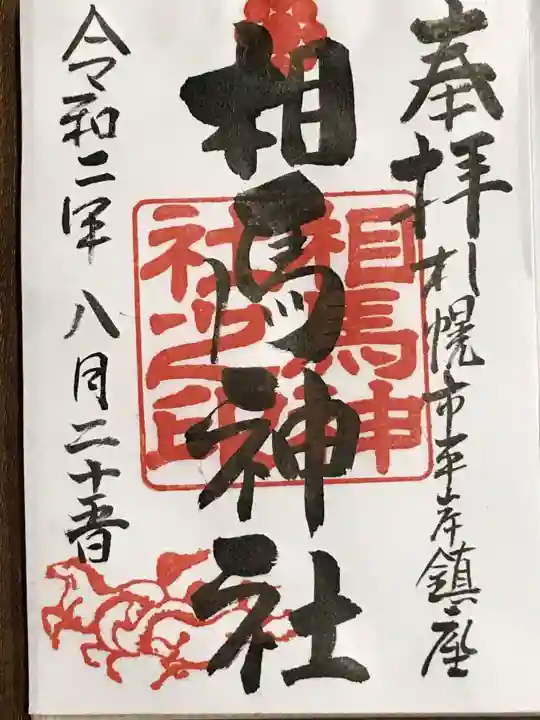 奉拝
札幌市平岸鎮座
相馬神社
相馬神
社之印
令和二年八月二十五日